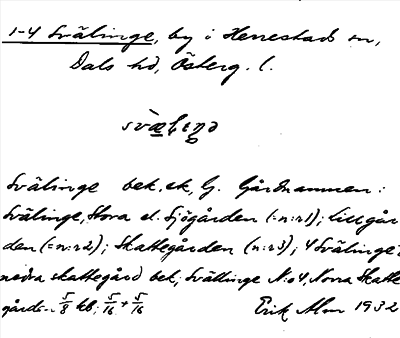 1-4 Svälinge, by i Herrestads sn,
Dals hd, Österg. l.
Svälinge bek, ek, G. Gårdnamnen:
Svälinge, Stora el. Sjögården (=n:r1); Lillgår
den (=n:r2); Skattegården (n:r3); 4 Svälinge:
nedra skattegård bek; Svällinge No4, Norra Skatte
gårds-. 5/8 kb; 5/16 + 5/16 Erik Alm 1932